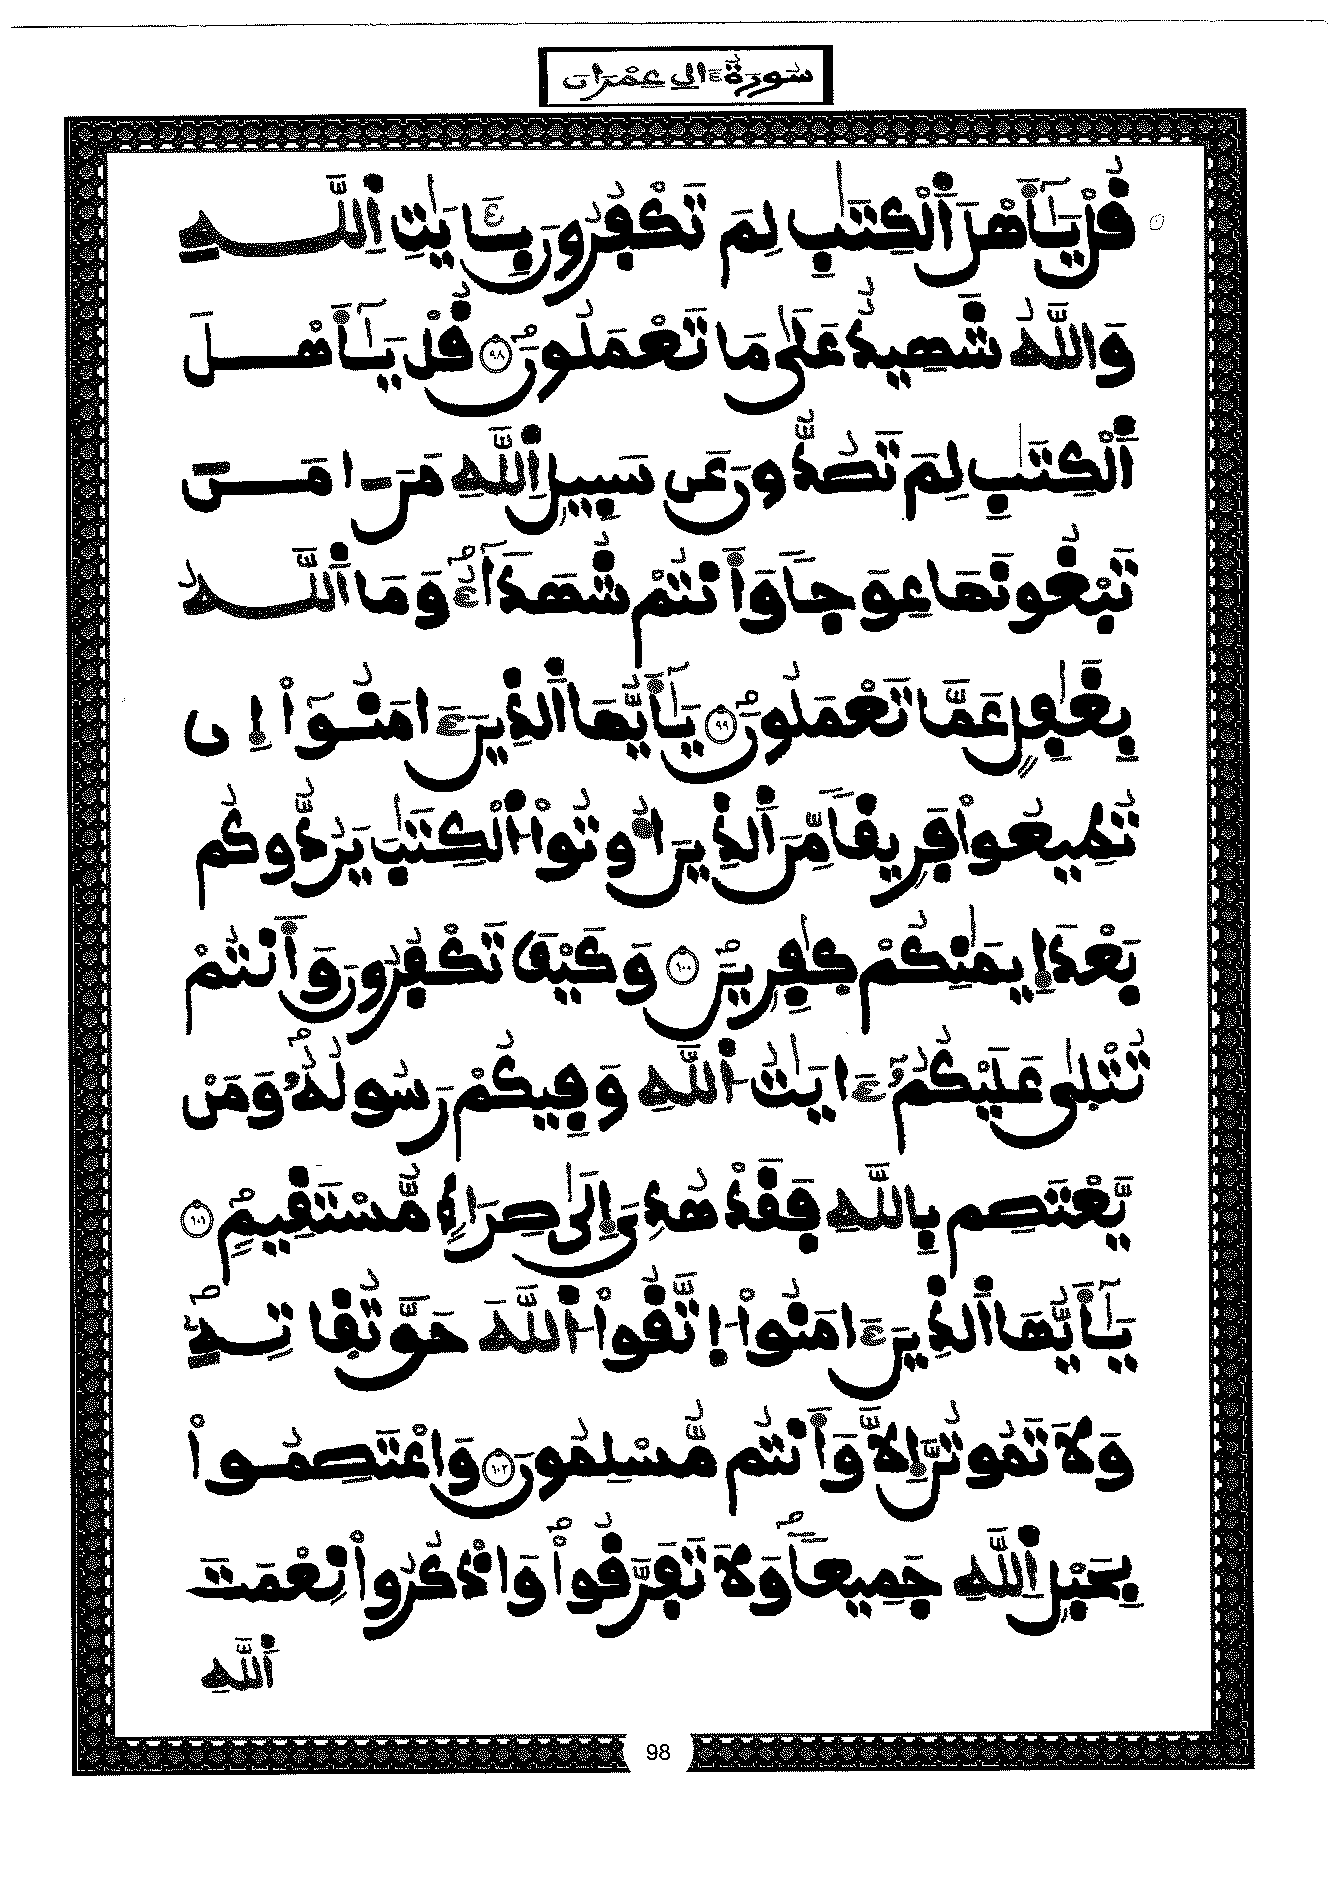 سورة ءال عمران
قُلْ يَٰٓأَهْلَ اَ۬لْكِتَٰبِ لِمَ تَكْفُرُونَ بِـَٔايَٰتِ اِ۬للَّهِ
وَاللَّهُ شَهِيدٌ عَلَىٰ مَا تَعْمَلُونَ ٩٨ قُلْ يَٰٓأَهْلَ
اَ۬لْكِتَٰبِ لِمَ تَصُدُّونَ عَن سَبِيلِ اِ۬للَّهِ مَنَ ـ ا مَنَ
تَبْغُونَهَا عِوَجاٗ وَأَنتُمْ شُهَدَآءُ وَمَا اَ۬للَّهُ
بِغَٰفِلٍ عَمَّا تَعْمَلُونَ ٩٩ يَٰٓأَيُّهَا اَ۬لذِينَ ءَامَنُوٓاْ إِن
تُطِيعُواْ فَرِيقاٗ مِّنَ اَ۬لذِينَ أُوتُواْ اُ۬لْكِتَٰبَ يَرُدُّوكُم
بَعْدَ إِيمَٰنِكُمْ كَٰفِرِينَ ١٠٠ وَكَيْفَ تَكْفُرُونَ وَأَنتُمْ
تُتْلَىٰ عَلَيْكُمُۥٓ ءَايَٰتُ اُ۬للَّهِ وَفِيكُمْ رَسُولُهُۥ وَمَنْ
يَّعْتَصِم بِاللَّهِ فَقَدْ هُدِيَ إِلَىٰ صِرَٰطٖ مُّسْتَقِيمٖ ١٠١
يَٰٓأَيُّهَا اَ۬لذِينَ ءَامَنُواْ اُ۪تَّقُواْ اُ۬للَّهَ حَقَّ تُقَاتِهِۦ
وَلَا تَمُوتُنَّ إِلَّا وَأَنتُم مُّسْلِمُونَ ١٠٢ وَاعْتَصِمُواْ
بِحَبْلِ اِ۬للَّهِ جَمِيعاٗ وَلَا تَفَرَّقُواْ وَاذْكُرُواْ نِعْمَتَ
اَ۬للَّهِ
98